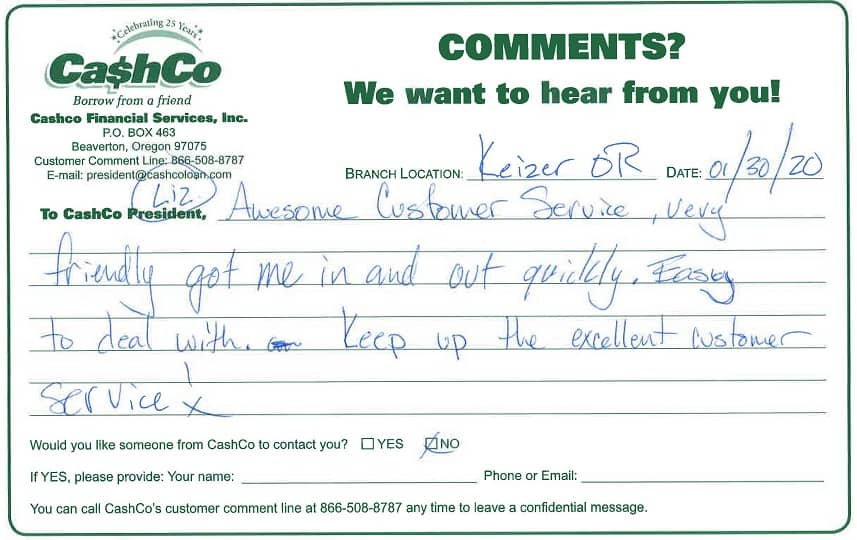 Celebrating 25 Years
Ca$hCo
Borrow from a friend
Cashco Financial Services, Inc.
P.O. BOX 463
Beaverton, Oregon 97075
Customer Comment Line: 866-508-8787
E-mail: president@cashcoloan.com
COMMENTS?
We want to hear from you!
BRANCH LOCATION: Keizer OR DATE: 01/30/20
(Liz.)
To CashCo President, Awesome Customer Service, very
friendly got me in and out quickly. Easy
to deal with. Keep up the excellent customer
Service!
Would you like someone from CashCo to contact you? ☐ YES ☑ NO
If YES, please provide: Your name: Phone or Email:
You can call CashCo's customer comment line at 866-508-8787 any time to leave a confidential message.